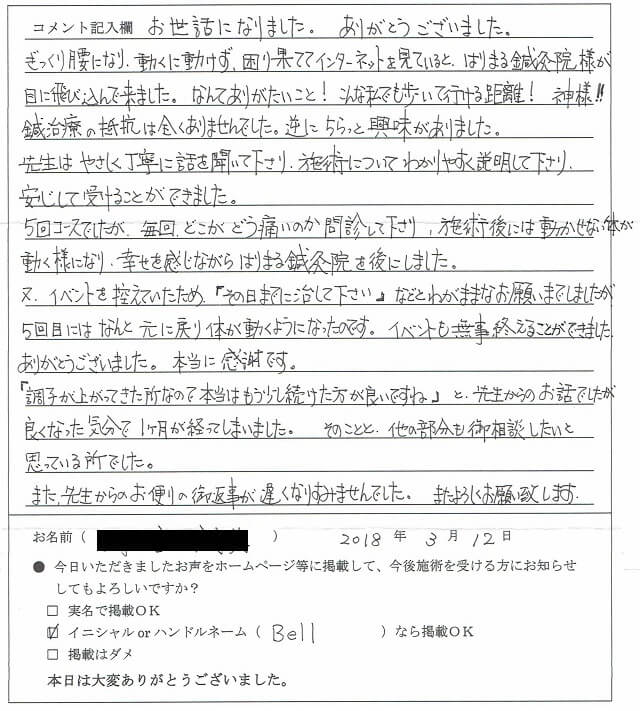 コメント記入欄 お世話になりました。 ありがとうございました。
ぎっくり腰になり、動くに動けず、困り果ててインターネットを見ていると、はりまる鍼灸院様が
目に飛び込んで来ました。なんてありがたいこと！こんな私でも歩いて行ける距離！ 神様!!
鍼治療の抵抗は全くありませんでした。逆にちらっと興味がありました。
先生はやさしく丁寧に話を聞いて下さり、施術についてわかりやすく説明して下さり、
安心して受けることができました。
5回コースでしたが、毎回、どこがどう痛いのか問診して下さり、施術後には動かせない体が
動く様になり、幸せを感じながらはりまる鍼灸院を後にしました。
又、イベントを控えていたため、『その日までに治して下さい』などとわがままなお願いまでしましたが
5回目にはなんと元に戻り体が動くようになったのです。イベントも無事終えることができました。
ありがとうございました。本当に感謝です。
『調子が上がってきた所なので本当はもう少し続けた方が良いですね』と、先生からのお話でしたが
良くなった気分で1ヶ月が経ってしまいました。 そのことと、他の部分も御相談したいと
思っている所でした。
また、先生からのお便りの御返事が遅くなりすみませんでした。 またよろしくお願い致します。
お名前（ ） 2018 年 3 月 12 日
● 今日いただきましたお声をホームページ等に掲載して、今後施術を受ける方にお知らせ
してもよろしいですか？
□ 実名で掲載OK
☑ イニシャル or ハンドルネーム（ Bell ）なら掲載OK
□ 掲載はダメ
本日は大変ありがとうございました。